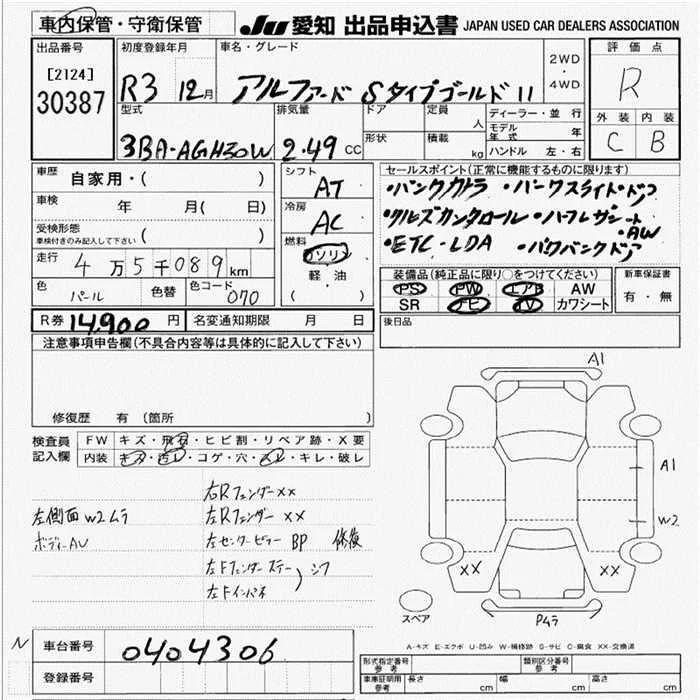 車内保管・守衛保管
JU 愛知 出品申込書 JAPAN USED CAR DEALERS ASSOCIATION
出品番号
[2124]
30387
初度登録年月
R3 12月
車名・グレード
アルファード Sタイプゴールド II
2WD
・
4WD
評価点
R
外装 内装
C B
型式
3BA-AGH30W
排気量
2.49 CC
ドア
形状
定員
人
積載
kg
ディーラー・並行
モデル年式 年
ハンドル 左・右
車歴
自家用・( )
車検
年 月( 日)
受検形態
車検付きのみ記入して下さい ( )
走行
4万5千089km
色
パール
色替
色コード
070
シフト
AT
冷房
AC
燃料
ガソリン
軽・油
( )
セールスポイント(正常に機能するものに限ります)
・バックカメラ ・パワースライドドア
・クルーズコントロール ・ハーフレザーシート
・AW
・ETC・LDA ・パワーバックドア
装備品(純正品に限り○をつけてください)
PS PW エアB AW
SR ナビ TV カワシート
新車保証書
有・無
R券 14,900円
名変通知期限 月 日
後日品
注意事項申告欄(不具合内容等は具体的に記入して下さい)
修復歴 有 (箇所 )
検査員記入欄
FW キズ・飛石・ヒビ割・リペア跡・X要
内装 キズ・汚レ・コゲ・穴・スレ・キレ・破レ
左側面 W2ムラ
ボディーAU
右Rフェンダー XX
左Rフェンダー XX
左センターピラー BP 修復
左Fフェンダーステー
左Fインパネ
) シワ
A1
A1
W2
XX
XX
Pムラ
スペア
A-キズ E-エクボ U-凹み W-補修跡 S-サビ C-腐食 XX-交換済
N
車台番号
0404306
登録番号
形式指定番号
参考
類別区分番号
参考
車庫証明用
参考
長さ cm 幅 cm 高さ cm